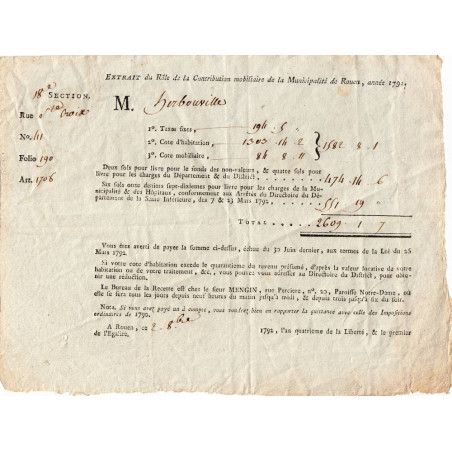 EXTRAIT du Rôle de la Contribution mobiliaire de la Municipalité de Rouen, année 1791.
18e SECTION.
M. herbouville
Rue Ste Croix
No. 41
Folio 190
Art. 1706
1o. Taxes fixes, 194 5 "
2o. Cote d'habitation, 1303 14 2
3o. Cote mobiliaire, 84 8 11
1582 8 1
Deux sols pour livre pour le fonds des non-valeurs, & quatre sols pour
livre pour les charges du Département & du District, 474 14 6
Six sols onze deniers sept-dixiemes pour livre pour les charges de la Mu-
nicipalité & des Hôpitaux, conformément aux Arrêtés du Directoire du Dé-
partement de la Seine Inférieure, des 7 & 23 Mars 1792, 551 19 "
TOTAL 2609 1 7
Vous êtes averti de payer la somme ci-dessus, échue du 30 Juin dernier, aux termes de la Loi du 25
Mars 1792.
Si votre cote d'habitation excede le quarantieme du revenu présumé, d'après la valeur locative de votre
habitation ou de votre traitement, &c., vous pouvez vous adresser au Directoire du District, pour obte-
nir une réduction.
Le Bureau de la Recette est chez le sieur MENGIN, rue Perciere, no. 20, Paroisse Notre-Dame, où
il se sera tous les jours depuis neuf heures du matin jusqu'à midi, & depuis trois jusqu'à six du soir.
Nota. Si vous avez payé un à compte, vous voudrez bien en rapporter la quittance avec celle des Impositions
ordinaires de 1790.
A ROUEN, ce 2. 8.bre 1792, l'an quatrieme de la Liberté, & le premier
de l'Egalité.